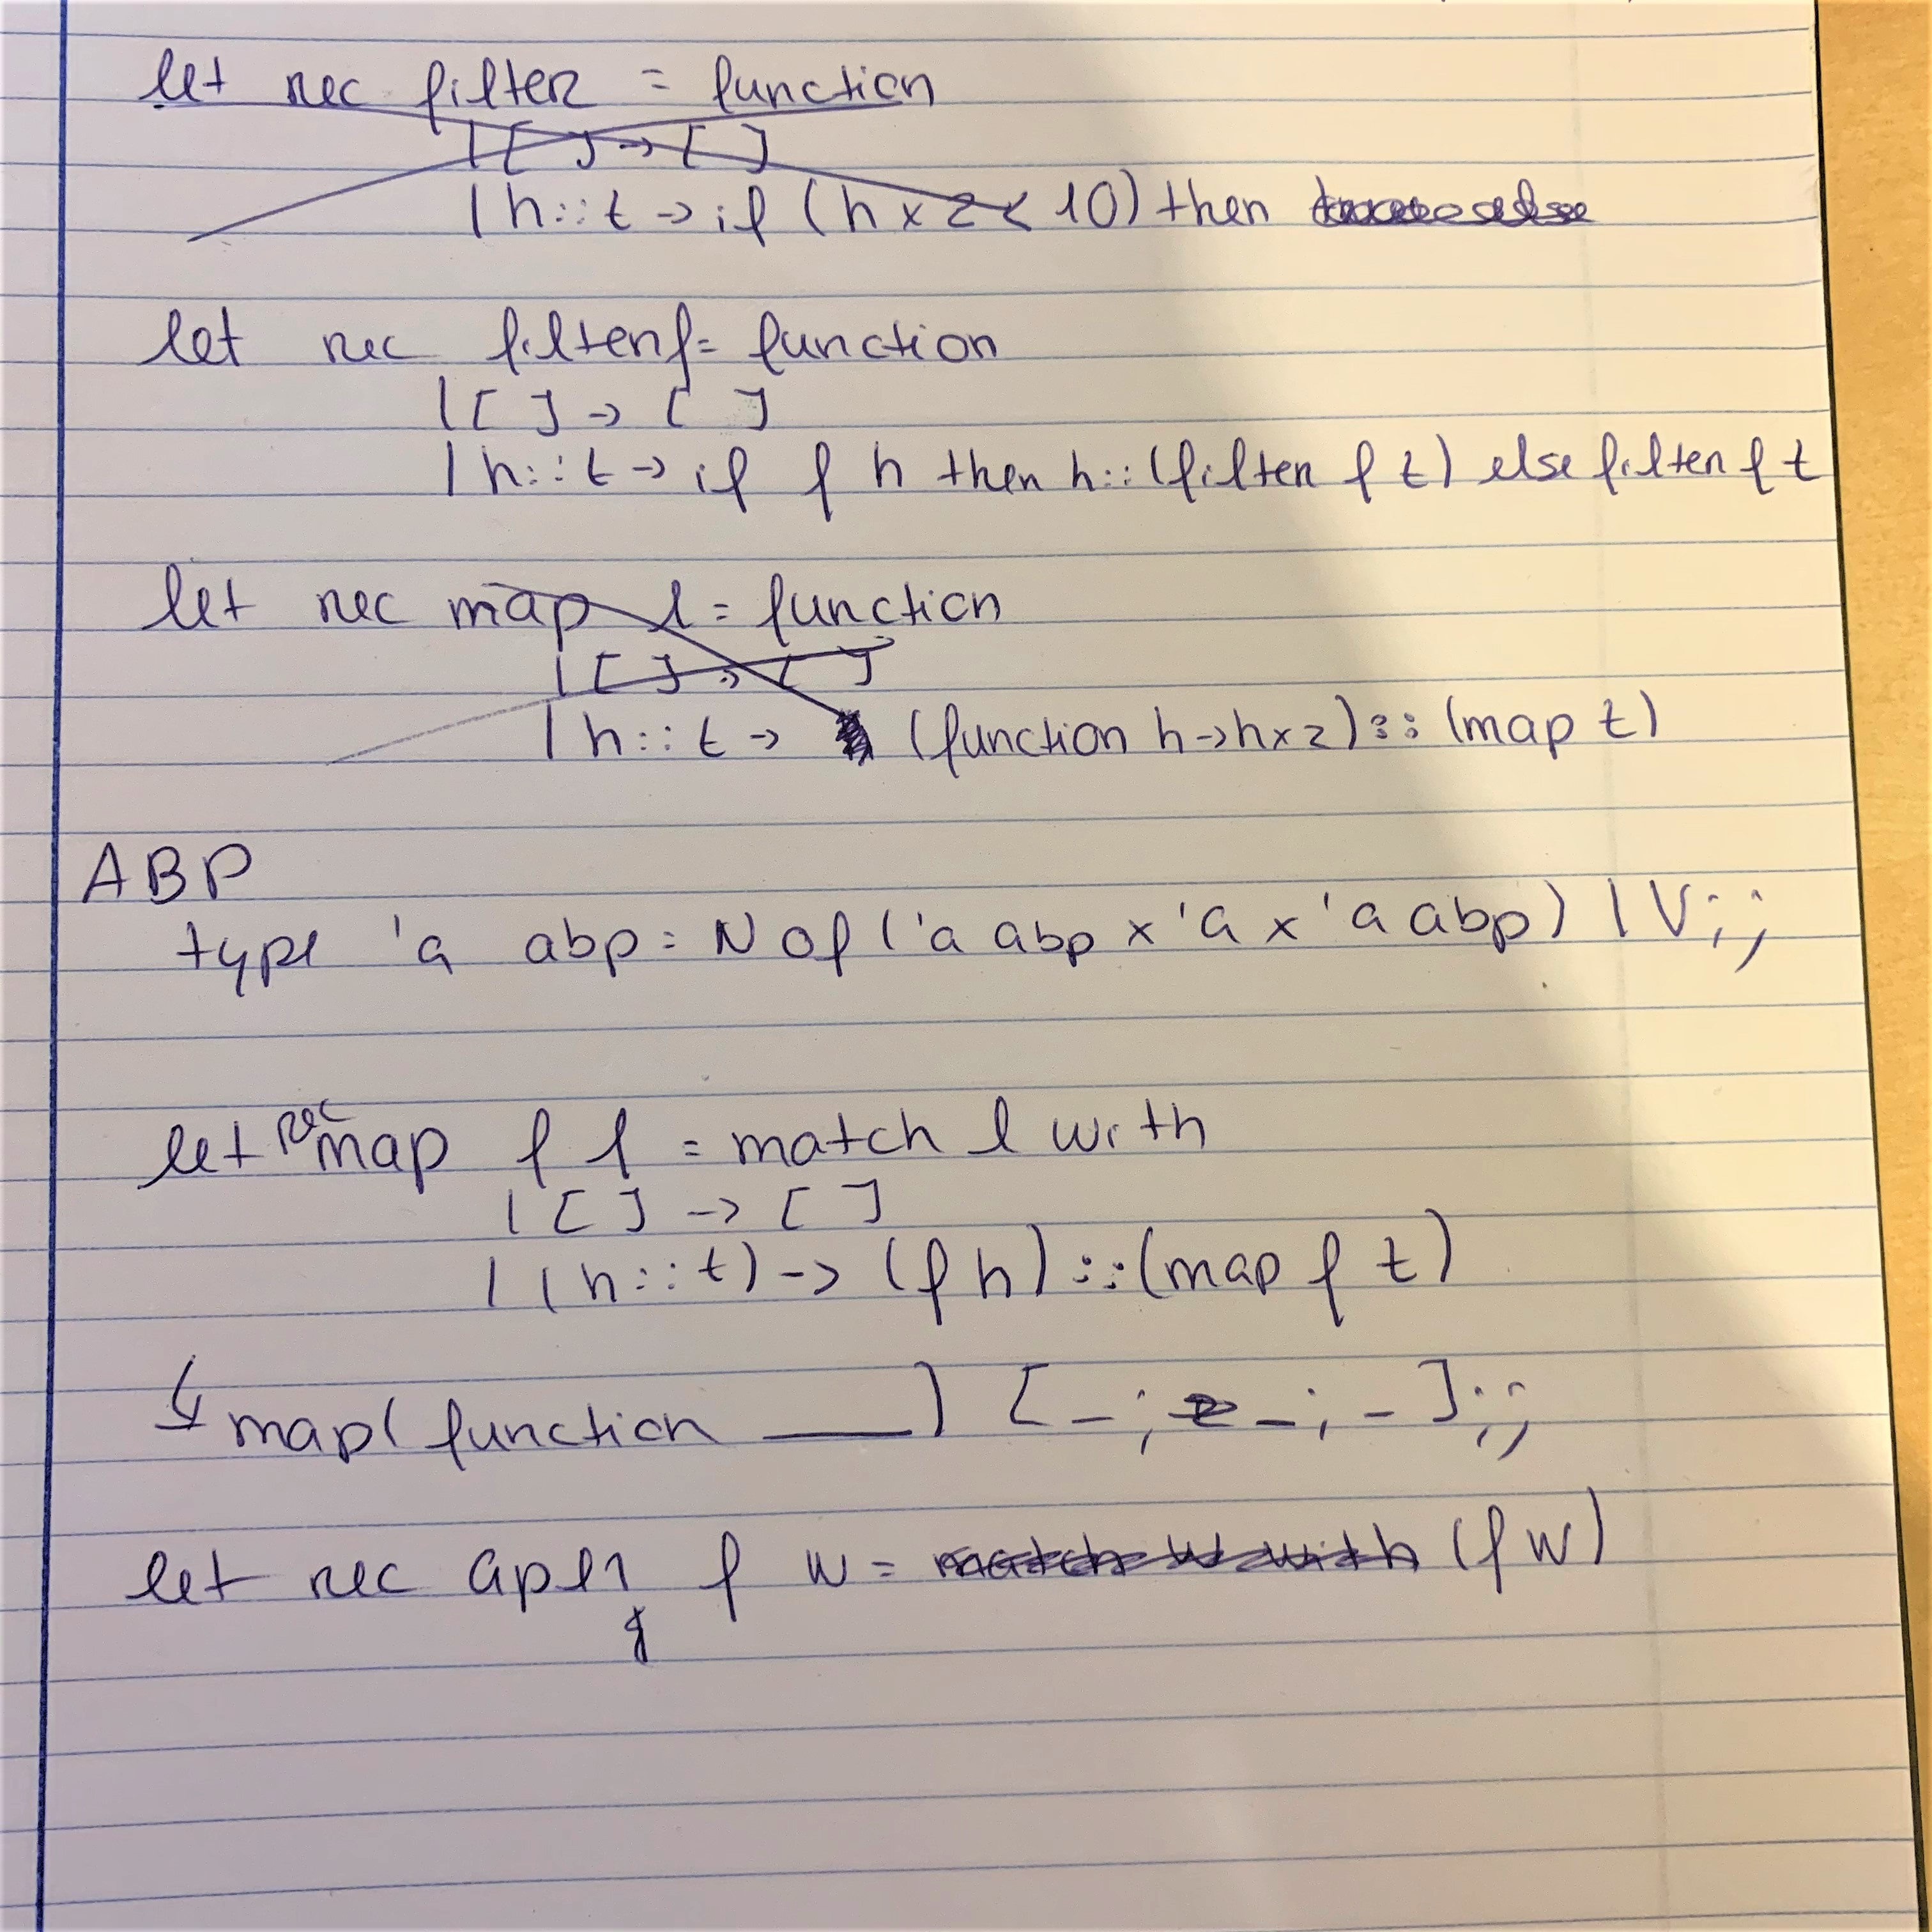 let rec filter = function
| [ ] -> [ ]
| h::t -> if (h x 2 < 10) then
let rec filter f = function
| [ ] -> [ ]
| h::t -> if f h then h::(filter f t) else filter f t
let rec map l = function
| [ ] -> [ ]
| h::t -> (function h -> h x 2) :: (map t)
ABP
type 'a abp = N of ('a abp x 'a x 'a abp) | V;;
let rec map f l = match l with
| [ ] -> [ ]
| (h::t) -> (f h) :: (map f t)
↳ map (function ___) [_; _; _];;
let rec f w = match w with (f w)